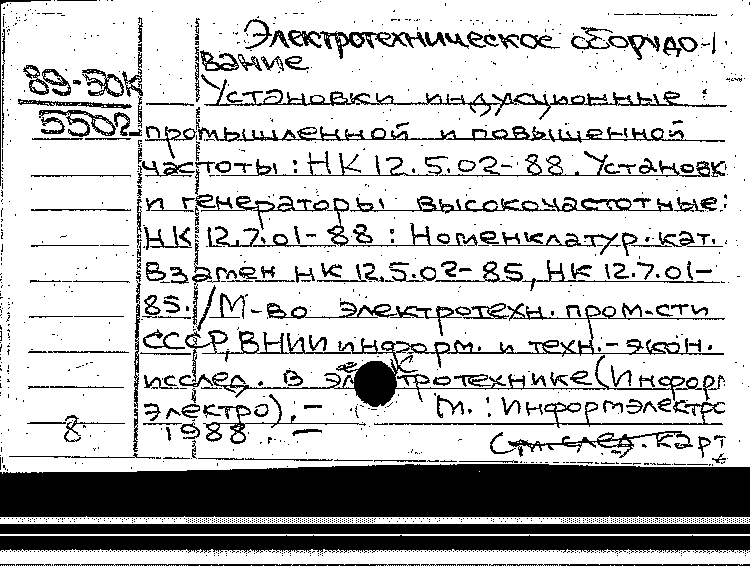 Электротехническое оборудо-
вание
89-50К
5502
Установки индукционные
промышленной и повышенной
частоты : НК 12.5.02-88. Установк
и генераторы высокочастотные:
НК 12.7.01-88 : Номенклатур. кат.
Взамен НК 12.5.02-85, НК 12.7.01-
85. / М-во электротехн. пром-сти
СССР, ВНИИ информ. и техн.-экон.
исслед. в электротехнике (Информ
электро). – М. : Информэлектро
8 1988. –
См. след. карт